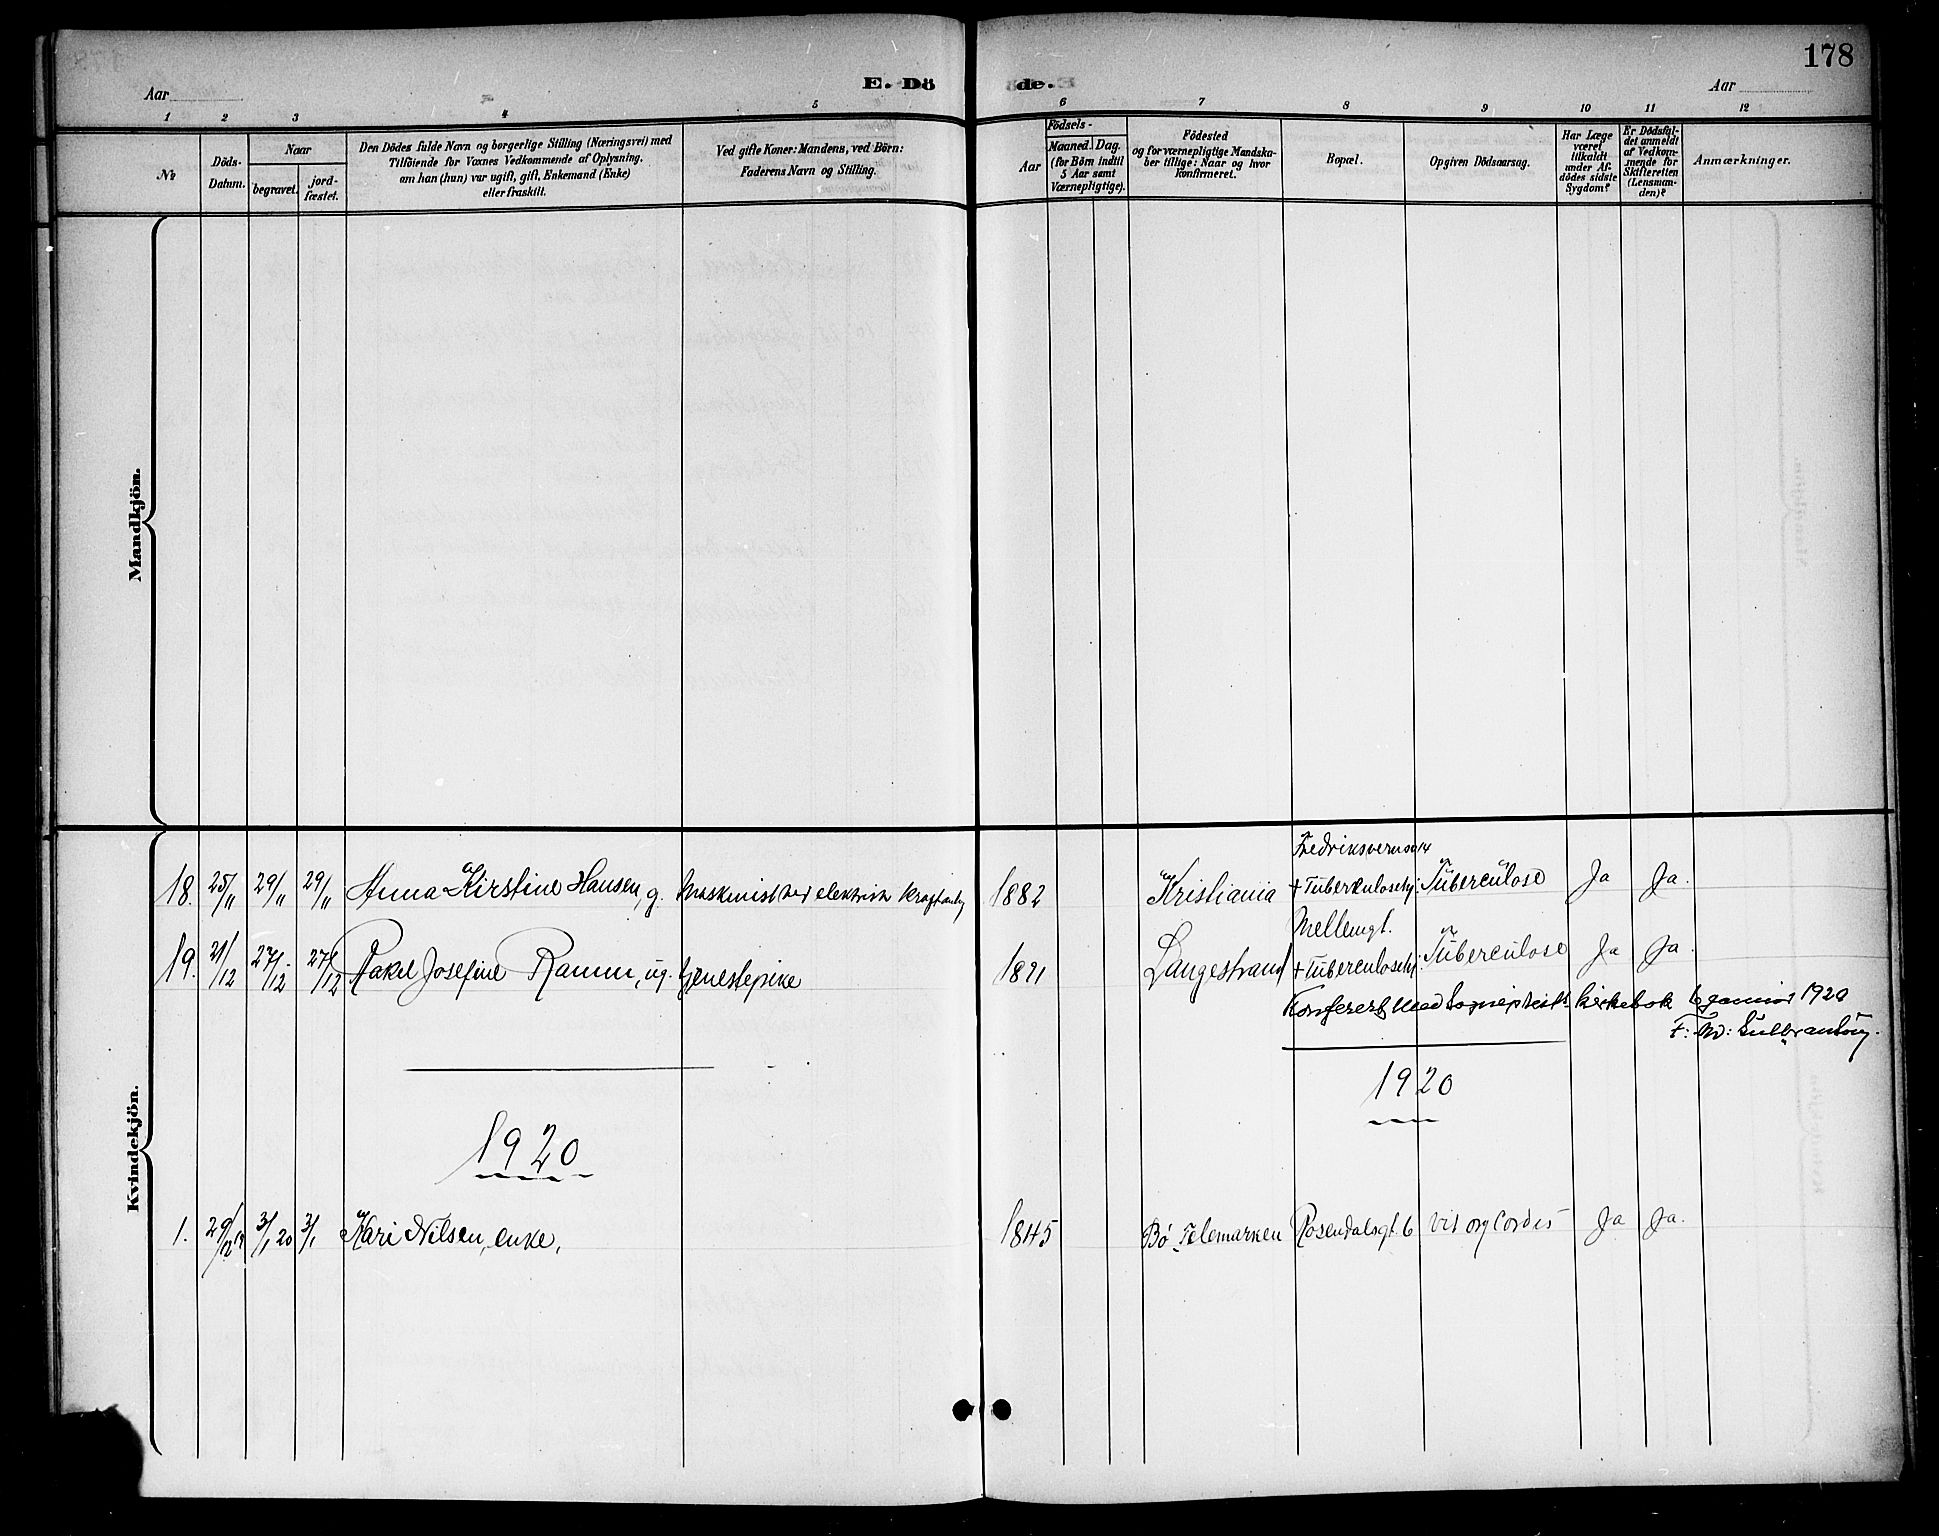 178
E. Dö de.
Aar Aar
1 2 3 4 5 6 7 8 9 10 11 12
№
Döds-
Datum.
Naar
begravet.
jord-
fæstet.
Den Dödes fulde Navn og borgerlige Stilling (Næringsvei) med
Tilföiende for Voxnes Vedkommende af Oplysning,
om han (hun) var ugift, gift, Enkemand (Enke)
eller fraskilt.
Ved gifte Koner: Mandens, ved Börn:
Faderens Navn og Stilling.
Aar
Födsels-
Maaned. Dag.
(for Börn indtil
5 Aar samt
Værnepligtige).
Födested
og for værnepligtige Mandska-
ber tillige: Naar og hvor
konfirmeret.
Bopæl.
Opgiven Dödsaarsag.
Har Læge
været
tilkaldt
under Af-
dödes sidste
Sygdom?
Er Dödsfal-
det anmeldt
af Vedkom-
mende for
Skifteretten
(Lensman-
den)?
Anmærkninger.
Mandkjön.
Kvindekjön.
Fredriksvernsv 14
18. 25/11 29/11 29/11 Anna Kirstine Hansen, g. Maskinist ved elektrisk kraftanlg 1882 Kristiania + Tuberkulosehj. Tuberculose Ja Ja.
Mellemgt.
19. 21/12 27/12 27/12 Rakel Josefine Ramm, ug. tjenestepike 1891 Langestrand + Tuberculosehj. Tuberculose Ja Ja.
Konferert med sogneprestens kirkebok 1920
1920
1920
1. 29/12 19 3/1 20 3/1 Kari Nilsen, enke, 1845 Bø Telemarken Rosendalsgt. 6 vit. org. cordis Ja Ja.